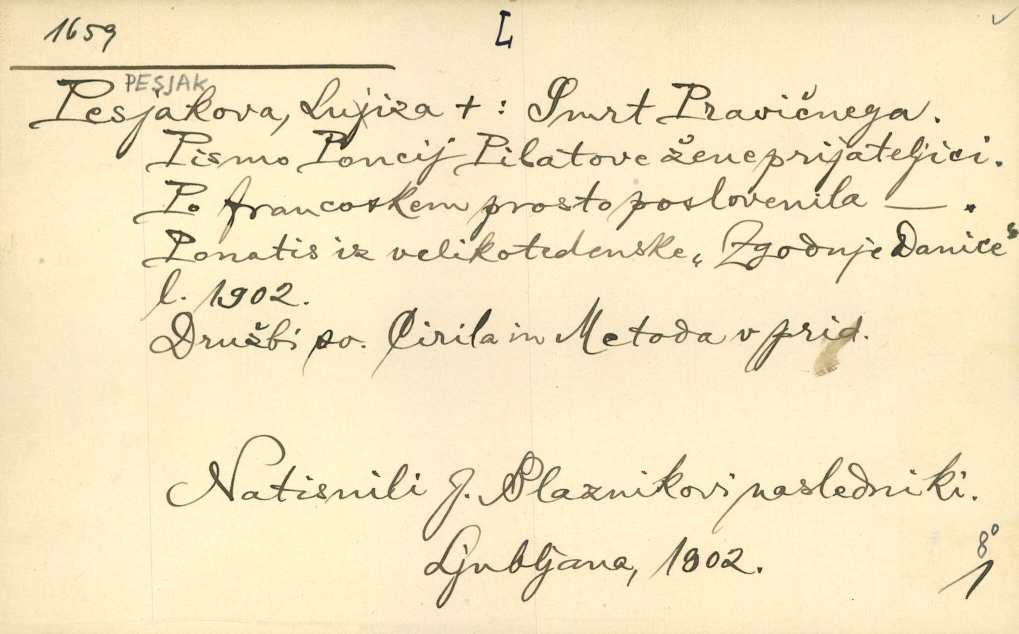 1659
L
PESJAK
Pesjakova, Lujiza + : Smrt Pravičnega.
Pismo Poncij Pilatove žene prijateljici.
Po francoskem prosto poslovenila — .
Ponatis iz velikotedenske „Zgodnje Danice“
l. 1902.
Družbi sv. Cirila in Metoda v prid.
Natisnili J. Blaznikovi nasledniki.
Ljubljana, 1902.
8°
1